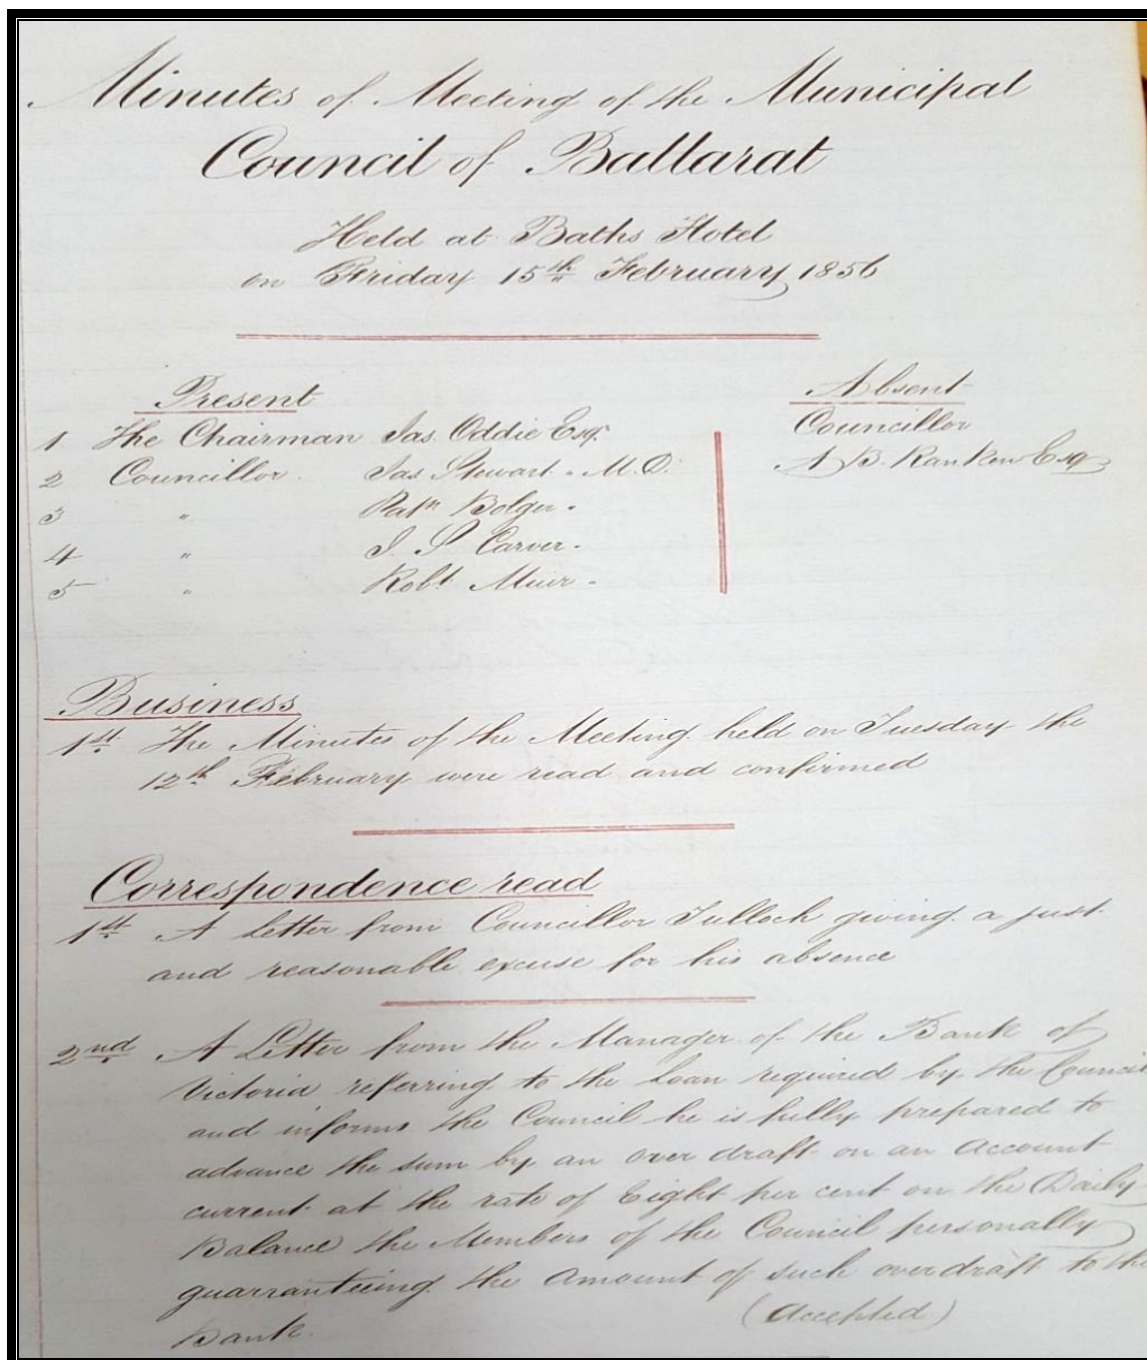 Minutes of Meeting of the Municipal
Council of Ballarat
Held at Baths Hotel
on Friday 15th February 1856
Present
1. The Chairman Jas. Oddie Esqr.
2 Councillor. Jas Stewart. M.D.
3 " Patk Bolger.
4 " J. S Carver.
5 " Robt Muir.
Absent
Councillor
A. B. Ranken Esq
Business
1st The Minutes of the Meeting held on Tuesday the
12th February were read and confirmed
Correspondence read
1st A Letter from Councillor Tulloch giving a just
and reasonable excuse for his absence
2nd A Letter from the Manager of the Bank of
Victoria referring to the Loan required by the Council
and informs the Council he is fully prepared to
advance the sum by an over draft on an account
current at the rate of Eight per cent on the Daily
Balance the Members of the Council personally
guarranteeing the amount of such overdraft to the
Bank. (Accepted)